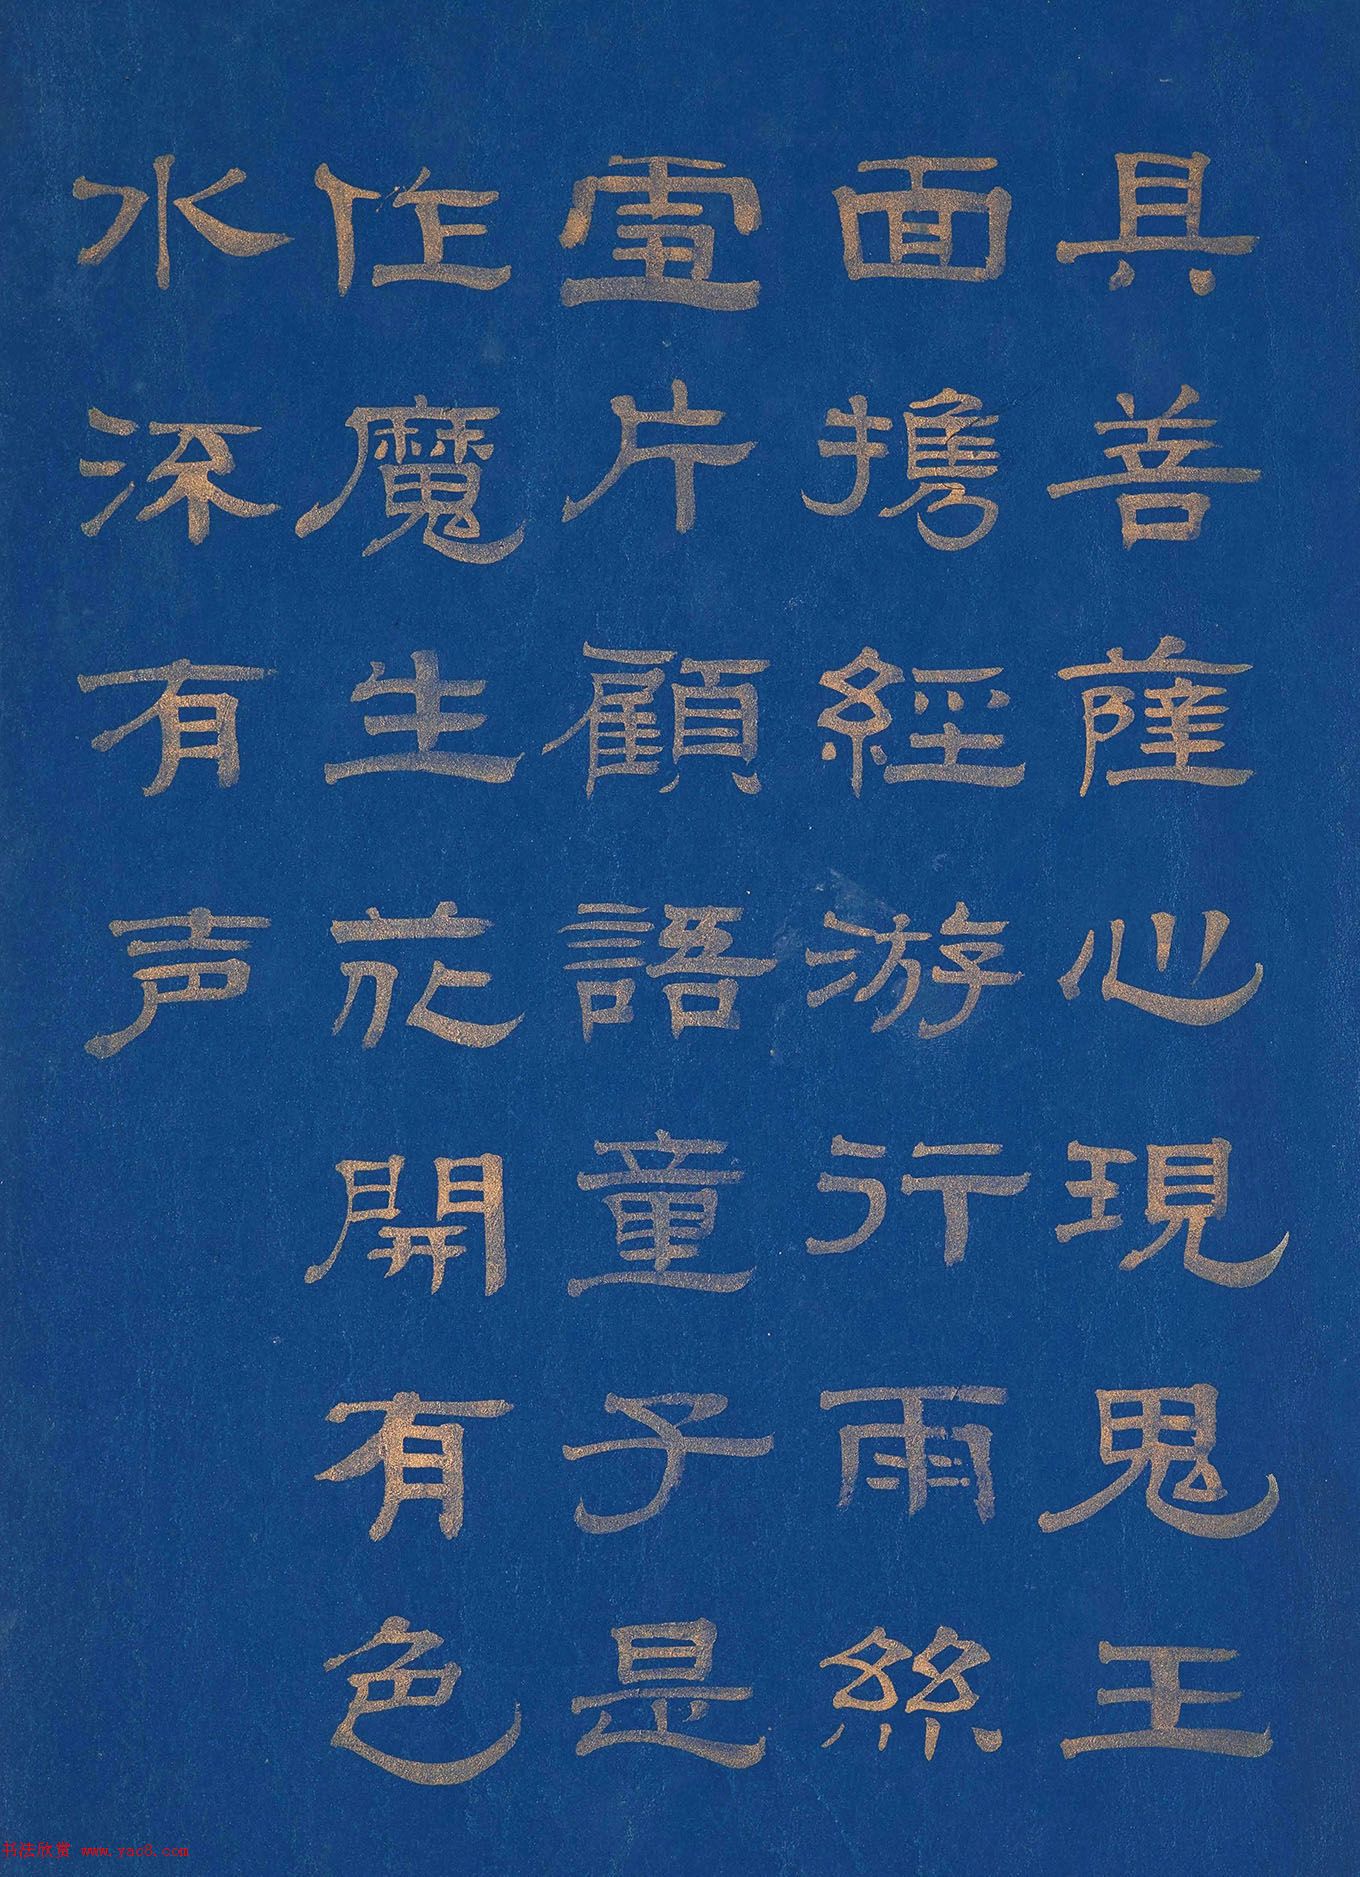 具善薩心現鬼王
面攜經游行雨絲
雲片顧語童子是
作魔生花開有色
水流有声
书法欣赏 www.yac8.com